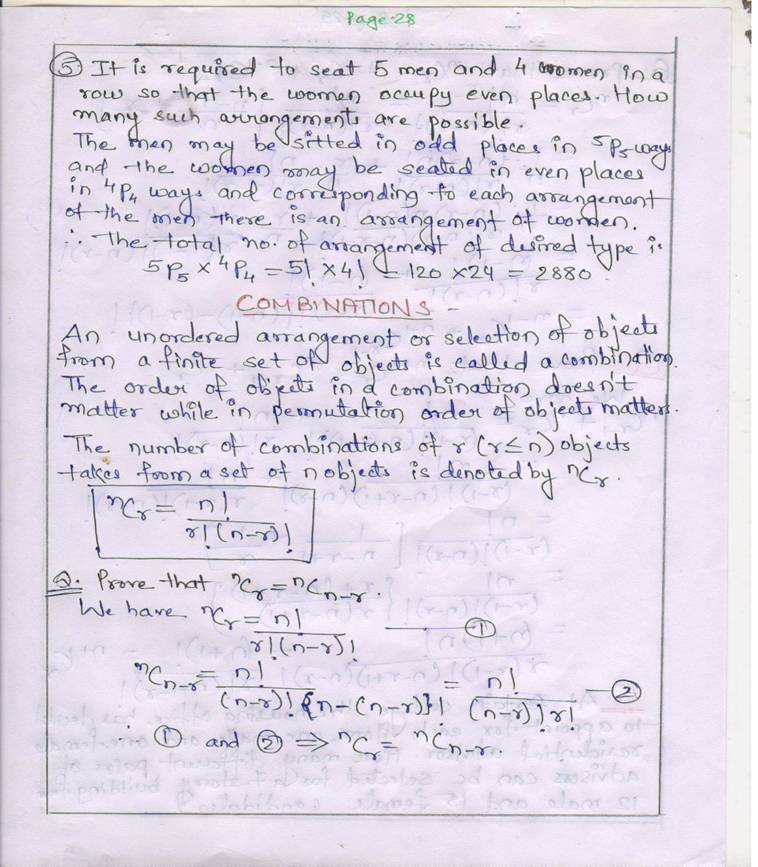 Page-28
⑤ It is required to seat 5 men and 4 women in a
row so that the women occupy even places. How
many such arrangements are possible.
The men may be sitted in odd places in ⁵P₅ ways
and the women may be seated in even places
in ⁴P₄ ways and corresponding to each arrangement
of the men there is an arrangement of women.
∴ The total no. of arrangement of desired type is
5P₅ × ⁴P₄ = 5! × 4! = 120 × 24 = 2880
COMBINATIONS -
An unordered arrangement or selection of objects
from a finite set of objects is called a combination.
The order of objects in a combination doesn't
matter while in permutation order of objects matters.
The number of combinations of r (r ≤ n) objects
takes from a set of n objects is denoted by ⁿCᵣ.
ⁿCᵣ = n! / r!(n-r)!
Q. Prove that ⁿCᵣ = ⁿCₙ₋ᵣ.
We have ⁿCᵣ = n! / r!(n-r)! — ①
ⁿCₙ₋ᵣ = n! / (n-r)!{n-(n-r)}! = n! / (n-r)!r! — ②
∴ ① and ② ⇒ ⁿCᵣ = ⁿCₙ₋ᵣ.